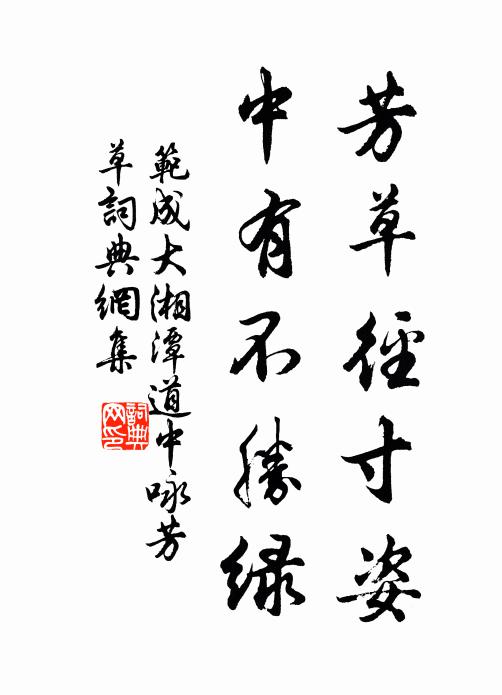 芳草徑寸姿
中有不勝緑
範成大湘潭道中咏芳
草詞典網集
詞典
网印